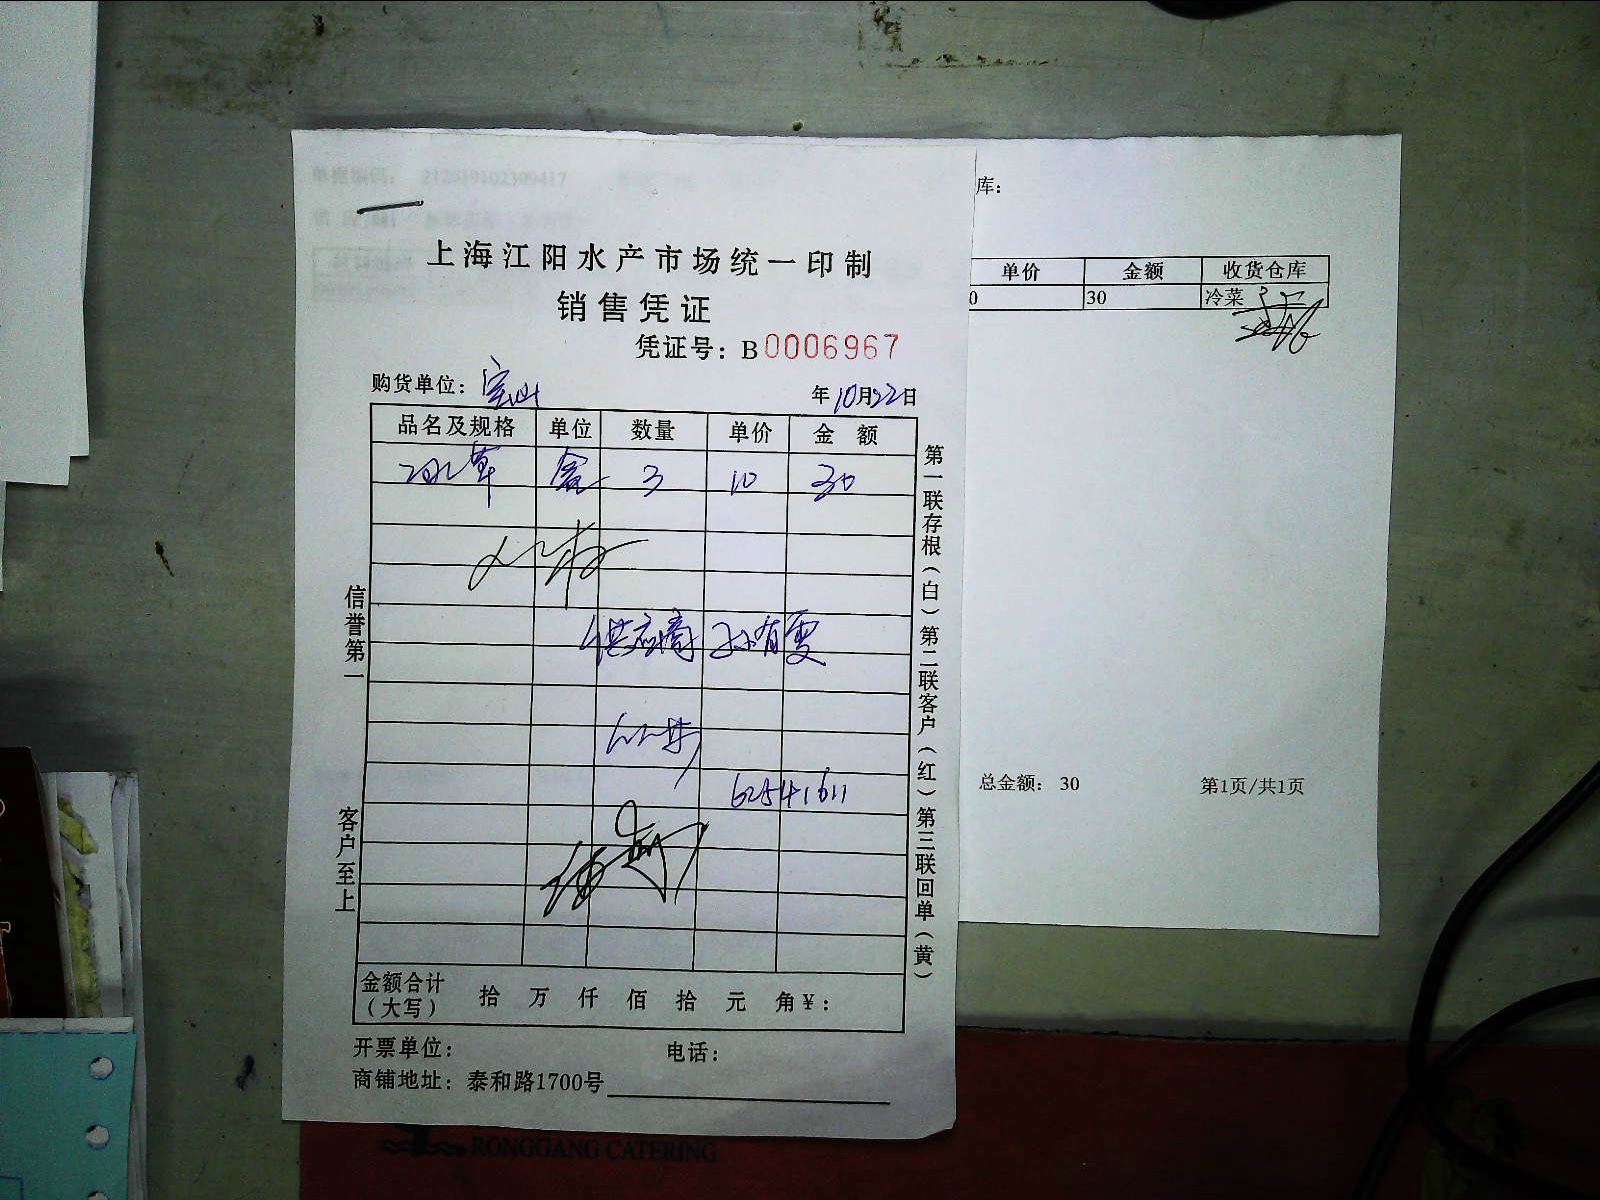 单据编码: 212019102309417
上海江阳水产市场统一印制
销售凭证
凭证号: B 0006967
购货单位: 宝山
年10月22日
品名及规格 单位 数量 单价 金 额
冰草 盒 3 10 30
供应商 孙有雯
62541611
金额合计
(大写) 拾 万 仟 佰 拾 元 角¥:
开票单位: 电话:
商铺地址: 泰和路1700号
信誉第一
客户至上
第一联存根(白)第二联客户(红)第三联回单(黄)
库:
单价 金额 收货仓库
0 30 冷菜
总金额: 30 第1页/共1页
RONGGANG CATERING